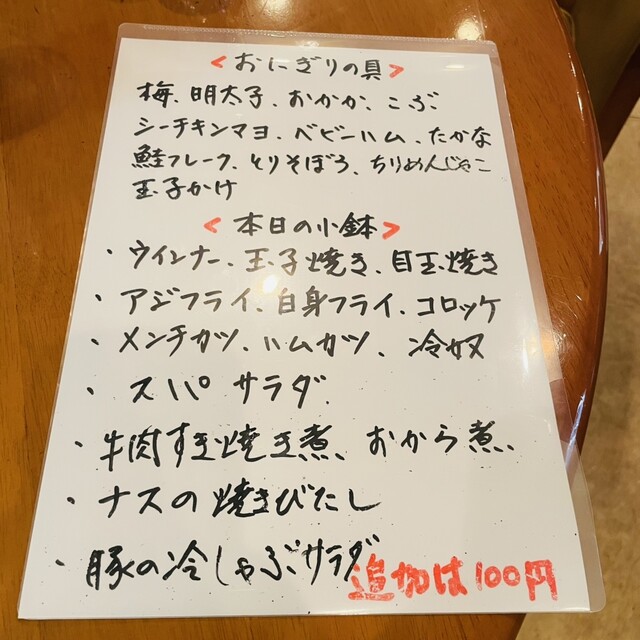 <おにぎりの具>
梅、明太子、おかか、こぶ
シーチキンマヨ、ベビーハム、たかな
鮭フレーク、とりそぼろ、ちりめんじゃこ
玉子かけ
<本日の小鉢>
・ウインナー、玉子焼き、目玉焼き
・アジフライ、白身フライ、コロッケ
・メンチカツ、ハムカツ、冷奴
・スパサラダ
・牛肉すき焼き煮、おから煮、
・ナスの焼きびたし
・豚の冷しゃぶサラダ
追加は100円